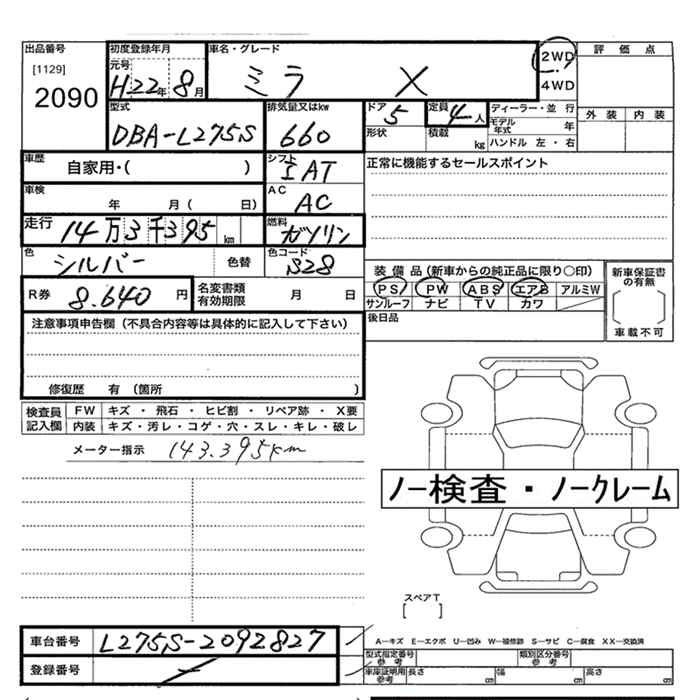 出品番号 初度登録年月 車名・グレード 2WD 評価点
[1129] 元号 4WD
2090 H22年8月 ミラ X
型式 排気量又はkw ドア 定員 ディーラー・並行 外装 内装
DBA-L275S 660 5 4人 モデル年式 年
形状 積載 kg ハンドル 左・右
車歴 自家用・( ) シフト IAT 正常に機能するセールスポイント
車検 年 月( 日) AC AC
走行 14万3千395km 燃料 ガソリン
色 シルバー 色替 色コード S28
装備品(新車からの純正品に限り○印) 新車保証書の有無
R券 8.640円 名変書類有効期限 月 日 PS PW ABS エアB アルミW
サンルーフ ナビ TV カワ
注意事項申告欄(不具合内容等は具体的に記入して下さい) 後日品 車載不可
修復歴 有(箇所 )
検査員記入欄 FW キズ・飛石・ヒビ割・リペア跡・X要
内装 キズ・汚レ・コゲ・穴・スレ・キレ・破レ
メーター指示 143.395km
ノー検査・ノークレーム
スペアT
[ ]
車台番号 L275S-2092827 A―キズ E―エクボ U―凹み W―補修跡 S―サビ C―腐食 XX―交換済
登録番号 型式指定番号 参考 類別区分番号 参考
車庫証明用 参考 長さ cm 幅 cm 高さ cm